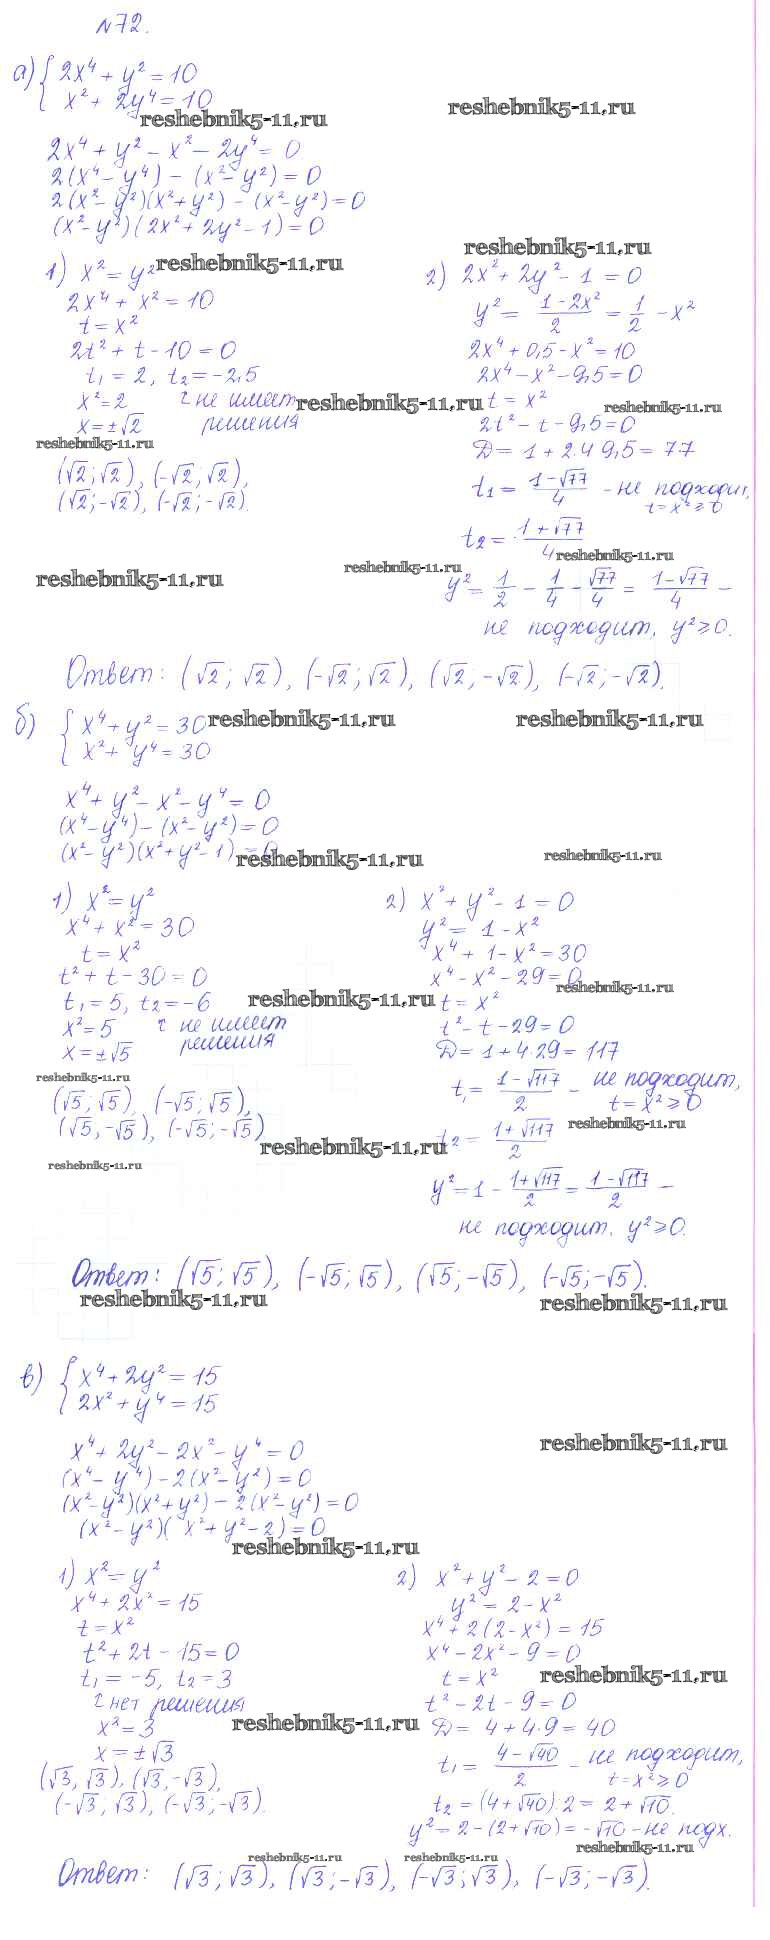 №72.
а) { 2x⁴ + y² = 10
x² + 2y⁴ = 10
reshebnik5-11.ru
reshebnik5-11.ru
2x⁴ + y² - x² - 2y⁴ = 0
2(x⁴ - y⁴) - (x² - y²) = 0
2(x² - y²)(x² + y²) - (x² - y²) = 0
(x² - y²)(2x² + 2y² - 1) = 0
reshebnik5-11.ru
1) x² = y²
reshebnik5-11.ru
2x⁴ + x² = 10
t = x²
2t² + t - 10 = 0
t₁ = 2, t₂ = -2,5
x² = 2 ↑ не имеет
x = ±√2 решения
reshebnik5-11.ru
reshebnik5-11.ru
(√2; √2), (-√2; √2),
(√2; -√2), (-√2; -√2).
reshebnik5-11.ru
2) 2x² + 2y² - 1 = 0
y² = (1 - 2x²)/2 = 1/2 - x²
2x⁴ + 0,5 - x² = 10
2x⁴ - x² - 9,5 = 0
t = x²
reshebnik5-11.ru
2t² - t - 9,5 = 0
D = 1 + 2·4·9,5 = 77
t₁ = (1 - √77)/4 - не подходит,
t = x² ≥ 0
t₂ = (1 + √77)/4
reshebnik5-11.ru
reshebnik5-11.ru
y² = 1/2 - 1/4 - √77/4 = (1 - √77)/4 -
не подходит, y² ≥ 0.
Ответ: (√2; √2), (-√2; √2), (√2; -√2), (-√2; -√2).
б) { x⁴ + y² = 30
x² + y⁴ = 30
reshebnik5-11.ru
reshebnik5-11.ru
x⁴ + y² - x² - y⁴ = 0
(x⁴ - y⁴) - (x² - y²) = 0
(x² - y²)(x² + y² - 1) = 0
reshebnik5-11.ru
reshebnik5-11.ru
1) x² = y²
x⁴ + x² = 30
t = x²
t² + t - 30 = 0
t₁ = 5, t₂ = -6
reshebnik5-11.ru
x² = 5 ↑ не имеет
x = ±√5 решения
reshebnik5-11.ru
(√5; √5), (-√5; √5),
(√5, -√5), (-√5; -√5)
reshebnik5-11.ru
reshebnik5-11.ru
2) x² + y² - 1 = 0
y² = 1 - x²
x⁴ + 1 - x² = 30
x⁴ - x² - 29 = 0
reshebnik5-11.ru
t = x²
t² - t - 29 = 0
D = 1 + 4·29 = 117
t₁ = (1 - √117)/2 - не подходит,
t = x² ≥ 0
reshebnik5-11.ru
t₂ = (1 + √117)/2
y² = 1 - (1 + √117)/2 = (1 - √117)/2 -
не подходит, y² ≥ 0.
Ответ: (√5; √5), (-√5; √5), (√5; -√5), (-√5; -√5).
reshebnik5-11.ru
reshebnik5-11.ru
в) { x⁴ + 2y² = 15
2x² + y⁴ = 15
reshebnik5-11.ru
x⁴ + 2y² - 2x² - y⁴ = 0
(x⁴ - y⁴) - 2(x² - y²) = 0
(x² - y²)(x² + y²) - 2(x² - y²) = 0
(x² - y²)(x² + y² - 2) = 0
reshebnik5-11.ru
1) x² = y²
x⁴ + 2x² = 15
t = x²
t² + 2t - 15 = 0
t₁ = -5, t₂ = 3
↑ нет решения
x² = 3
reshebnik5-11.ru
x = ±√3
(√3, √3), (√3, -√3),
(-√3; √3), (-√3; -√3).
2) x² + y² - 2 = 0
y² = 2 - x²
x⁴ + 2(2 - x²) = 15
x⁴ - 2x² - 9 = 0
t = x²
reshebnik5-11.ru
t² - 2t - 9 = 0
D = 4 + 4·9 = 40
t₁ = (4 - √40)/2 - не подходит,
t = x² ≥ 0
t₂ = (4 + √40):2 = 2 + √10.
y² = 2 - (2 + √10) = -√10 - не подх.
reshebnik5-11.ru
reshebnik5-11.ru
reshebnik5-11.ru
Ответ: (√3; √3), (√3; -√3), (-√3; √3), (-√3; -√3).